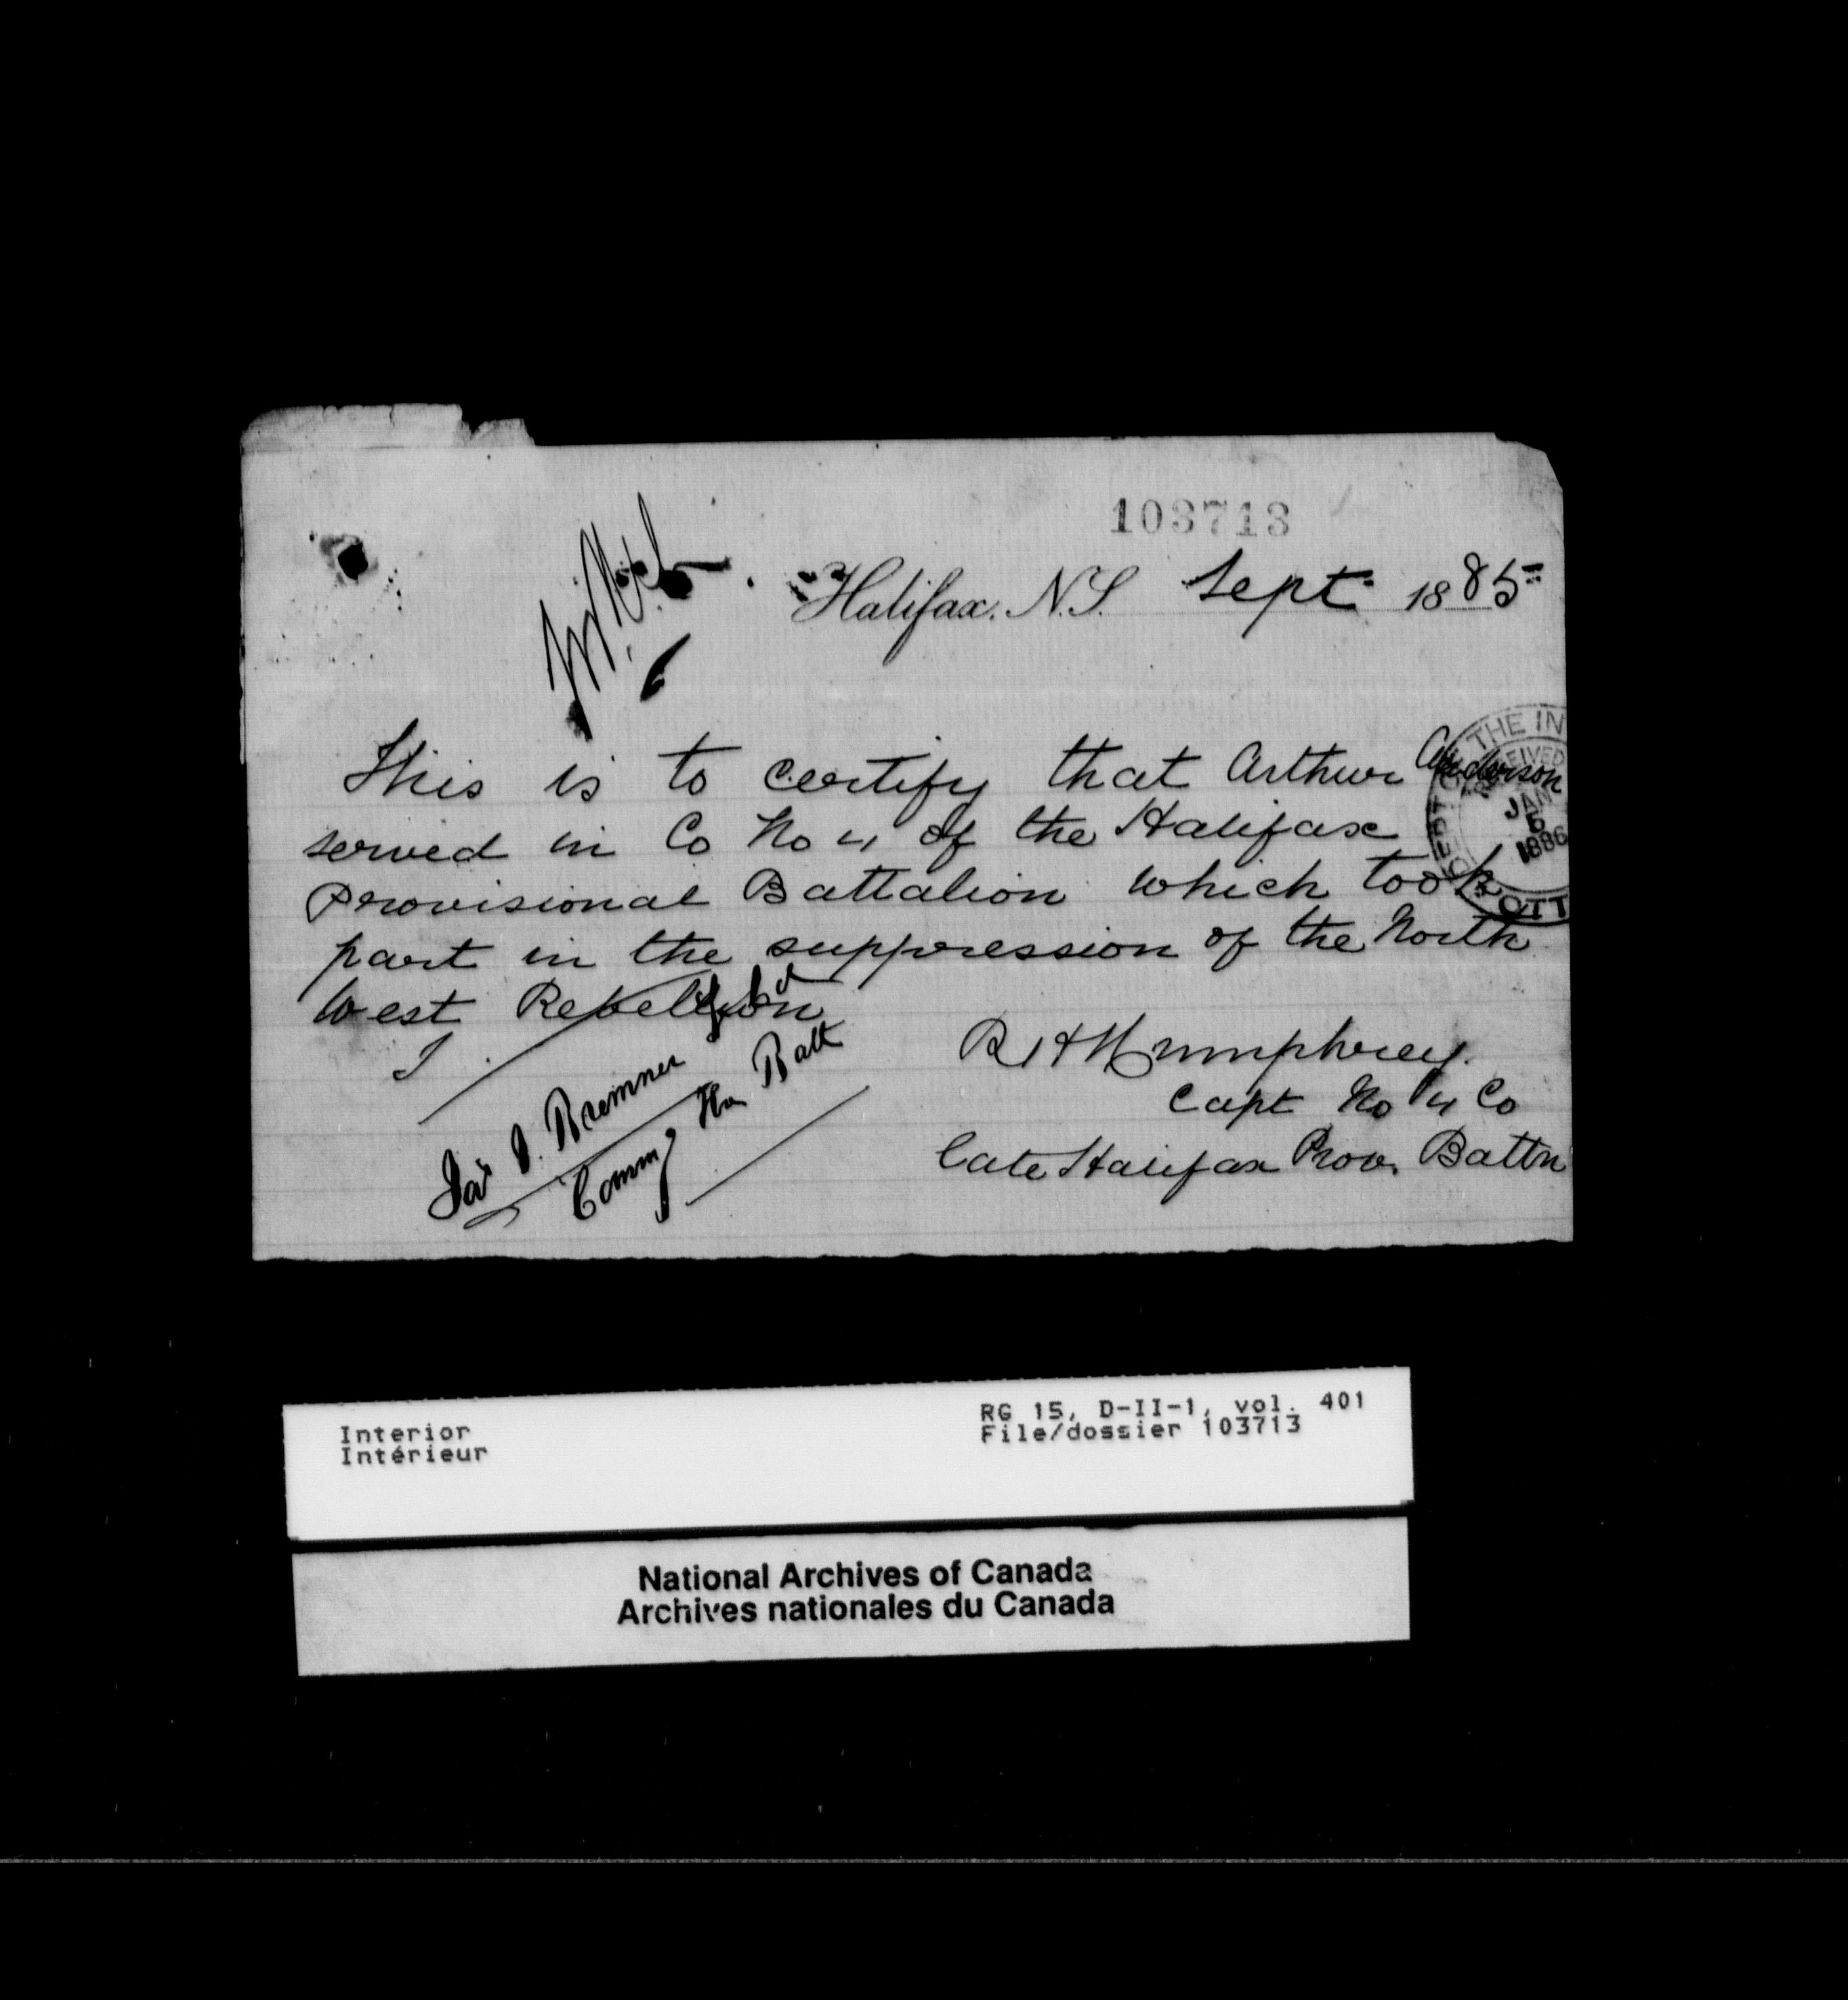 103713
Halifax, N.S. Sept 1885
This is to certify that Arthur Anderson
served in Co No 4 of the Halifax
Provisional Battalion which took
part in the suppression of the North
West Rebellion
R H Humphrey.
Capt No 4 Co
Late Halifax Prov. Battn
Jas J. Bremner
Comm Hx Batt
DEPT OF THE IN
RECEIVED
JAN
5
1886
OTT
Interior
Intérieur
RG 15, D-II-1, vol. 401
File/dossier 103713
National Archives of Canada
Archives nationales du Canada